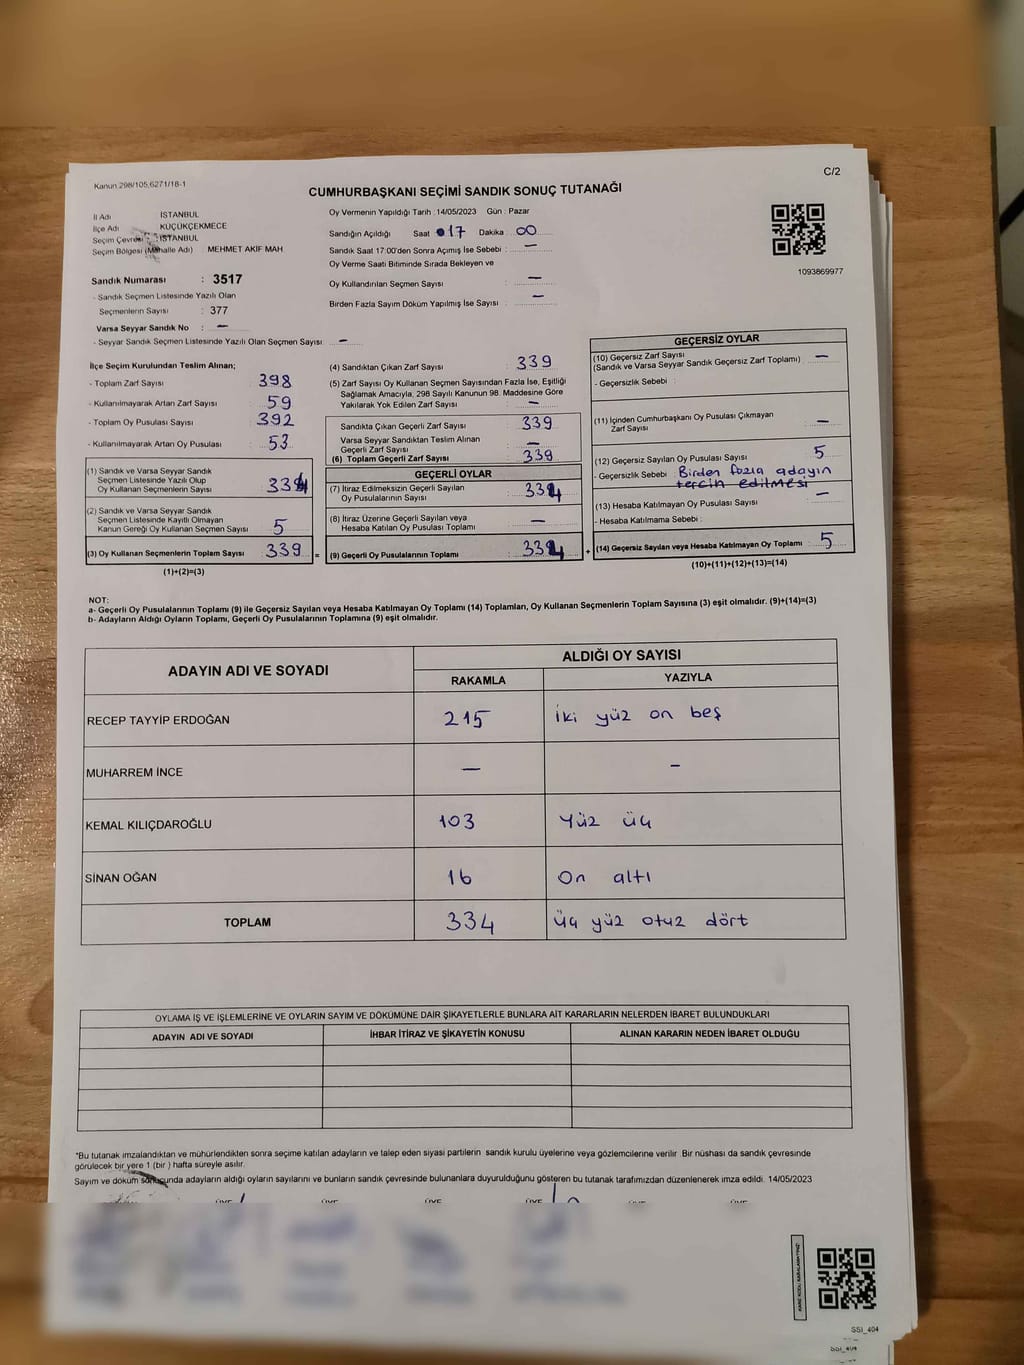 Kanun 298/105,6271/18-1
C/2
CUMHURBAŞKANI SEÇİMİ SANDIK SONUÇ TUTANAĞI
İl Adı İSTANBUL
İlçe Adı KÜÇÜKÇEKMECE
Seçim Çevresi : İSTANBUL
Seçim Bölgesi (Mahalle Adı) MEHMET AKİF MAH
Oy Vermenin Yapıldığı Tarih :14/05/2023 Gün : Pazar
Sandığın Açıldığı Saat 17 Dakika 00
Sandık Saat 17:00'den Sonra Açımış İse Sebebi : —
Oy Verme Saati Bitiminde Sırada Bekleyen ve
Oy Kullandırılan Seçmen Sayısı : —
Birden Fazla Sayım Döküm Yapılmış İse Sayısı : —
1093869977
Sandık Numarası : 3517
- Sandık Seçmen Listesinde Yazılı Olan
Seçmenlerin Sayısı : 377
Varsa Seyyar Sandık No : —
- Seyyar Sandık Seçmen Listesinde Yazılı Olan Seçmen Sayısı : —
İlçe Seçim Kurulundan Teslim Alınan;
- Toplam Zarf Sayısı : 398
- Kullanılmayarak Artan Zarf Sayısı : 59
- Toplam Oy Pusulası Sayısı : 392
- Kullanılmayarak Artan Oy Pusulası : 53
(1) Sandık ve Varsa Seyyar Sandık
Seçmen Listesinde Yazılı Olup
Oy Kullanan Seçmenlerin Sayısı : 334
(2) Sandık ve Varsa Seyyar Sandık
Seçmen Listesinde Kayıtlı Olmayan
Kanun Gereği Oy Kullanan Seçmen Sayısı : 5
(3) Oy Kullanan Seçmenlerin Toplam Sayısı : 339 =
(1)+(2)=(3)
(4) Sandıktan Çıkan Zarf Sayısı : 339
(5) Zarf Sayısı Oy Kullanan Seçmen Sayısından Fazla İse, Eşitliği
Sağlamak Amacıyla, 298 Sayılı Kanunun 98. Maddesine Göre
Yakılarak Yok Edilen Zarf Sayısı : —
Sandıkta Çıkan Geçerli Zarf Sayısı : 339
Varsa Seyyar Sandıktan Teslim Alınan
Geçerli Zarf Sayısı : —
(6) Toplam Geçerli Zarf Sayısı : 339
GEÇERLİ OYLAR
(7) İtiraz Edilmeksizin Geçerli Sayılan
Oy Pusulalarının Sayısı : 334
(8) İtiraz Üzerine Geçerli Sayılan veya
Hesaba Katılan Oy Pusulası Toplamı : —
(9) Geçerli Oy Pusulalarının Toplamı : 334 +
GEÇERSİZ OYLAR
(10) Geçersiz Zarf Sayısı
(Sandık ve Varsa Seyyar Sandık Geçersiz Zarf Toplamı) : —
- Geçersizlik Sebebi :
(11) İçinden Cumhurbaşkanı Oy Pusulası Çıkmayan
Zarf Sayısı : —
(12) Geçersiz Sayılan Oy Pusulası Sayısı : 5
- Geçersizlik Sebebi : Birden fazla adayın
tercin edilmesi
(13) Hesaba Katılmayan Oy Pusulası Sayısı : —
- Hesaba Katılmama Sebebi :
(14) Geçersiz Sayılan veya Hesaba Katılmayan Oy Toplamı : 5
(10)+(11)+(12)+(13)=(14)
NOT:
a- Geçerli Oy Pusulalarının Toplamı (9) ile Geçersiz Sayılan veya Hesaba Katılmayan Oy Toplamı (14) Toplamları, Oy Kullanan Seçmenlerin Toplam Sayısına (3) eşit olmalıdır. (9)+(14)=(3)
b- Adayların Aldığı Oyların Toplamı, Geçerli Oy Pusulalarının Toplamına (9) eşit olmalıdır.
ADAYIN ADI VE SOYADI
ALDIĞI OY SAYISI
RAKAMLA YAZIYLA
RECEP TAYYİP ERDOĞAN 215 iki yüz on beş
MUHARREM İNCE — —
KEMAL KILIÇDAROĞLU 103 Yüz üç
SİNAN OĞAN 16 On altı
TOPLAM 334 üç yüz otuz dört
OYLAMA İŞ VE İŞLEMLERİNE VE OYLARIN SAYIM VE DÖKÜMÜNE DAİR ŞİKAYETLERLE BUNLARA AİT KARARLARIN NELERDEN İBARET BULUNDUKLARI
ADAYIN ADI VE SOYADI İHBAR İTİRAZ VE ŞİKAYETİN KONUSU ALINAN KARARIN NEDEN İBARET OLDUĞU
*Bu tutanak imzalandıktan ve mühürlendikten sonra seçime katılan adayların ve talep eden siyasi partilerin sandık kurulu üyelerine veya gözlemcilerine verilir. Bir nüshası da sandık çevresinde
görülecek bir yere 1 (bir ) hafta süreyle asılır.
Sayım ve döküm sonucunda adayların aldığı oyların sayılarını ve bunların sandık çevresinde bulunanlara duyurulduğunu gösteren bu tutanak tarafımızdan düzenlenerek imza edildi. 14/05/2023
ÜYE ÜYE ÜYE ÜYE ÜYE ÜYE
SSİ_404
SSİ_404